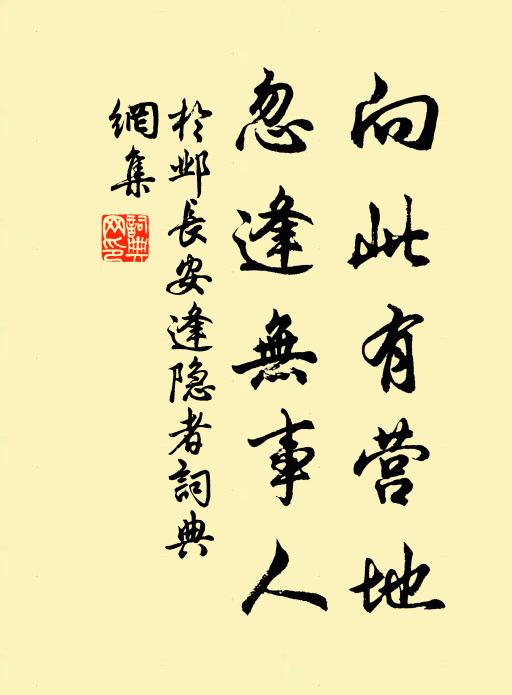 向此有营地
忽逢無事人
於邺長安逢隐者詞典
網集
詞典
网印